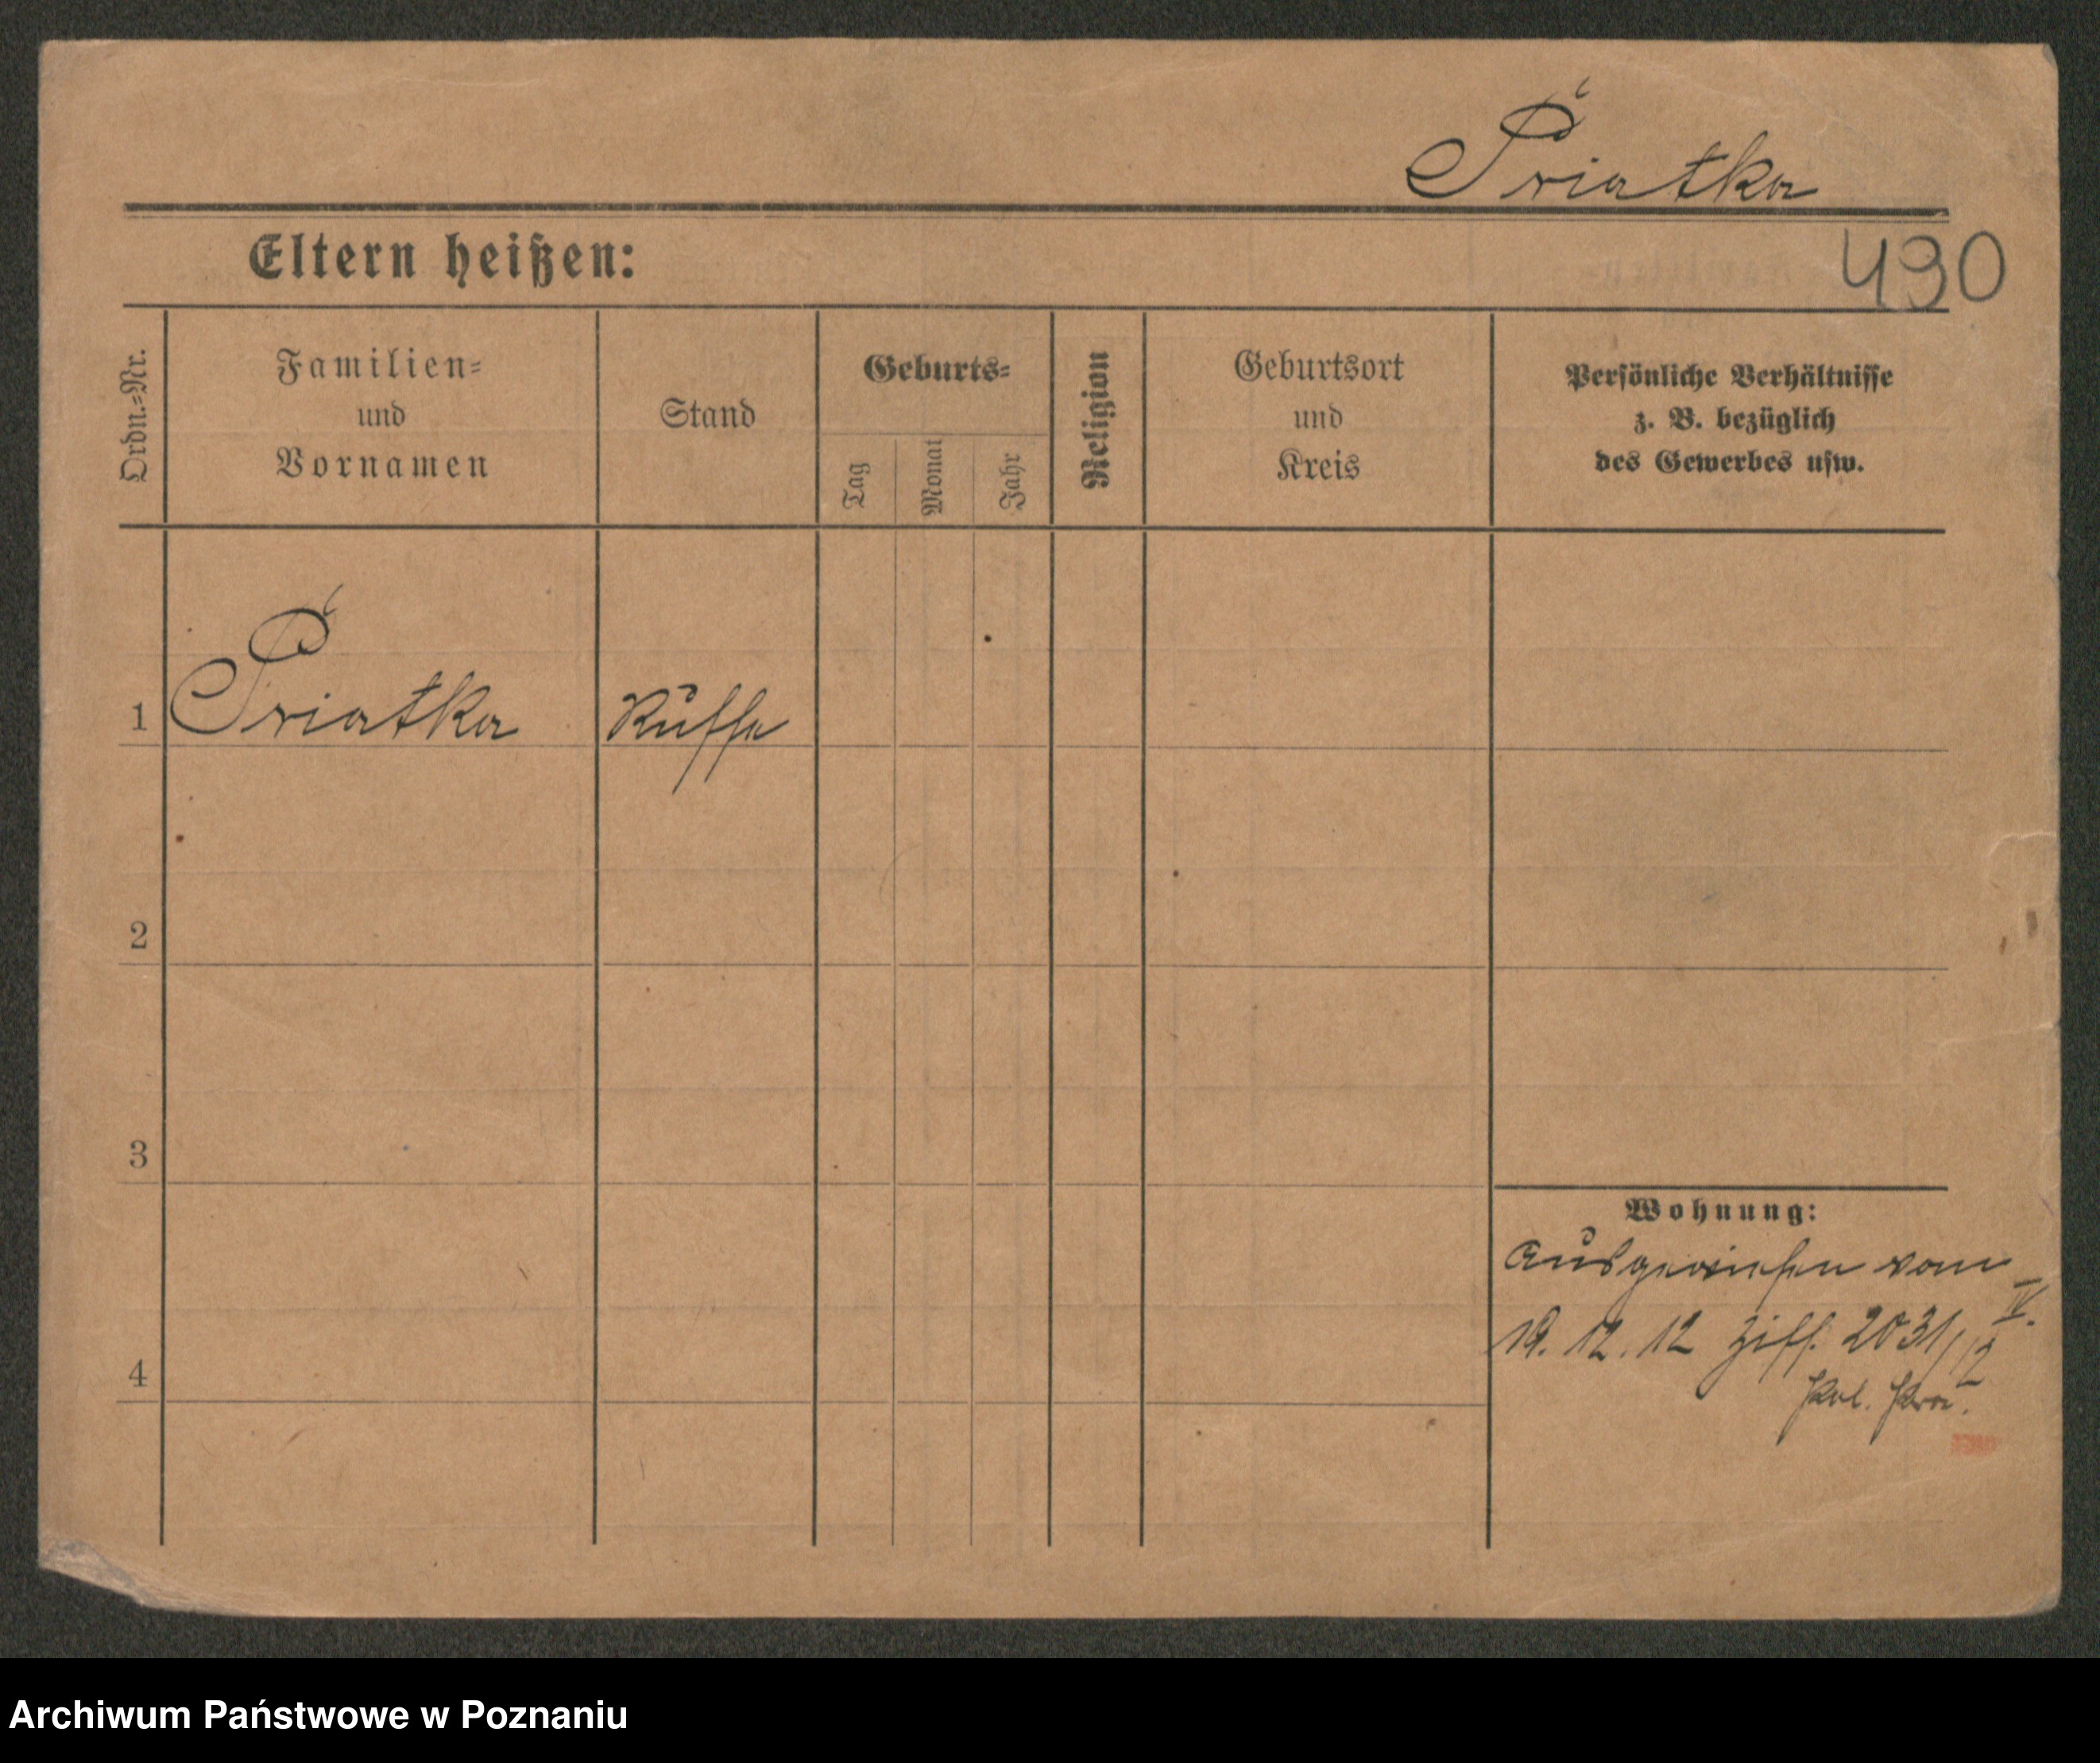 Priatka
Eltern heißen:
490
Ordn.=Nr.
Familien=
und
Vornamen
Stand
Geburts=
Tag
Monat
Jahr
Religion
Geburtsort
und
Kreis
Persönliche Verhältnisse
z. B. bezüglich
des Gewerbes usw.
1 Priatka Russe
2
3
4
Wohnung:
Ausgewiesen vom
19. 12. 12 Ziff. 2031/12 IV.
Pol.
Archiwum Państwowe w Poznaniu